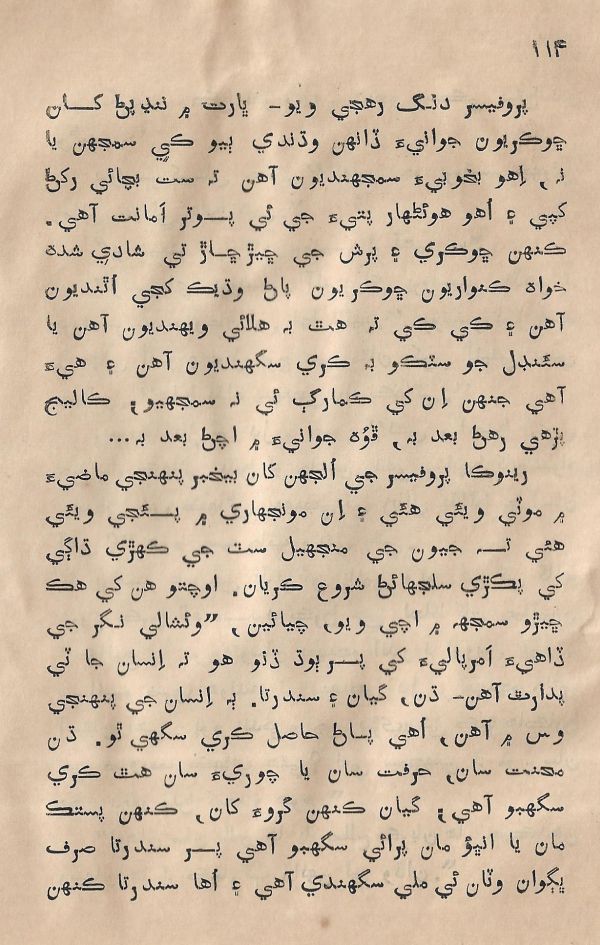 ۱۱۴
پروفيسر دنگ رهجي ويو- ڀارت ۾ ننڍپڻ کان
ڇوڪريون جوانيءَ ڏانهن وڌندي ٻيو ڪي سمجهن يا
نہ، اِهو بخوبيءَ سمجهنديون آهن تہ ست بچائي رکڻ
کپي ۽ اُهو هوئڻهار پتيءَ جي ئي پوتر اَمانت آهي.
ڪنهن ڇوڪري ۽ پرش جي ڇيڙڇاڙ تي شادي شده
خواہ ڪنواريون ڇوڪريون پاڻ وڌيڪ کڄي اُٿنديون
آهن ۽ ڪي ڪي تہ هٿ بہ هلائي ويهنديون آهن يا
سئنڊل جو سٽڪو بہ ڪري سگهنديون آهن ۽ هيءَ
آهي جنهن اِن کي ڪمارڳ ئي نہ سمجهيو؛ ڪاليج
پڙهي رهڻ بعد بہ، ڦوُہ جوانيءَ ۾ اچڻ بعد بہ...
رينوڪا پروفيسر جي اُلجهن کان بيخبر پنهنجي ماضيءَ
۾ موٽي ويئي هئي ۽ اِن مونجهاري ۾ پئجي ويئي
هئي تہ جيون جي منجهيل سٽ جي ڪهڙي ڌاڳي
کي پڪڙي سلجهائڻ شروع ڪريان. اوچتو هن کي هڪ
ڇيڙو سمجهہ ۾ اچي ويو، چيائين، ”وئشالي نگر جي
ڏاهيءَ اَمرپاليءَ کي پربوڌ ڏنو هو تہ اِنسان جا ٽي
پدارٿ آهن- ڌن، گيان ۽ سندرتا. ٻہ اِنسان جي پنهنجي
وس ۾ آهن، اُهي پاڻ حاصل ڪري سگهي ٿو. ڌن
محنت سان، حرفت سان يا چوريءَ سان هٿ ڪري
سگهبو آهي؛ گيان ڪنهن گروءَ کان، ڪنهن پستڪ
مان يا انڀؤ مان پرائي سگهبو آهي پر سندرتا صرف
ڀڳوان وٽان ئي ملي سگهندي آهي ۽ اُها سندرتا ڪنهن